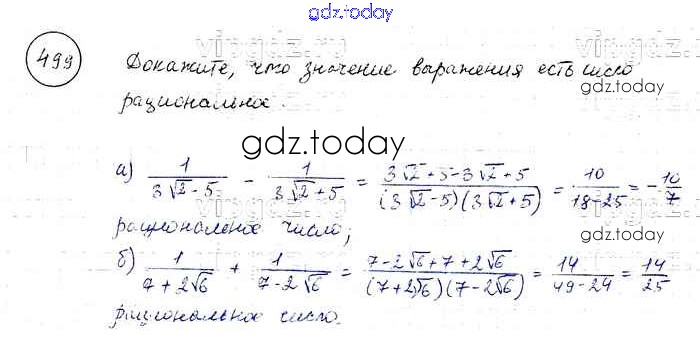 gdz.today
499
Докажите, что значение выражения есть число
рациональное.
gdz.today
а) 1/(3√2-5) - 1/(3√2+5) = (3√2+5-3√2+5)/((3√2-5)(3√2+5)) = 10/(18-25) = -10/7
gdz.today
рациональное число;
б) 1/(7+2√6) + 1/(7-2√6) = (7-2√6+7+2√6)/((7+2√6)(7-2√6)) = 14/(49-24) = 14/25
рациональное число.